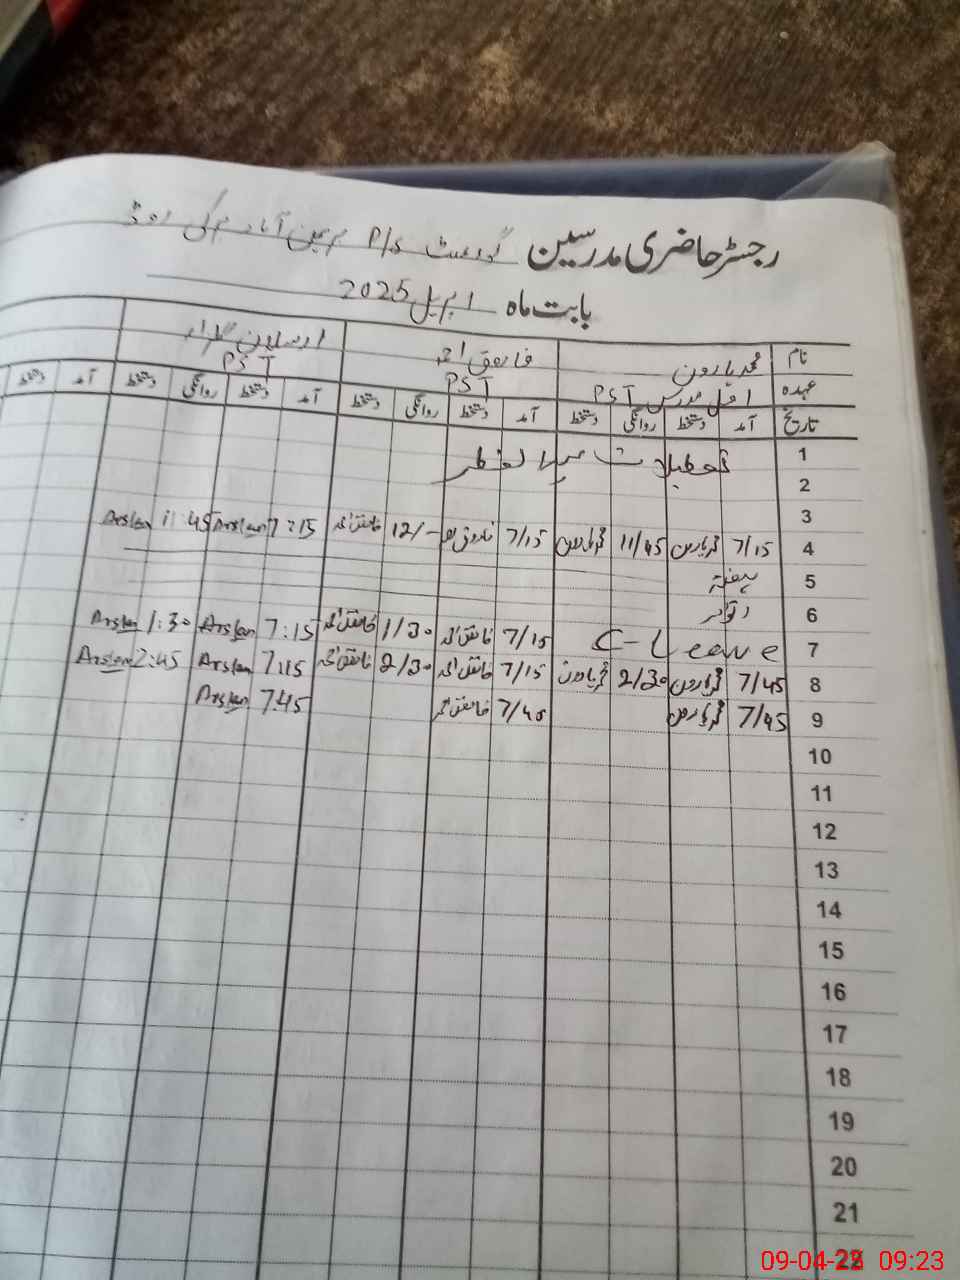 رجسٹر حاضری مدرسین گورنمنٹ P/S
بابت ماہ اپریل 2025
نام محمد ہارون فائق احمد ارسلان
عہدہ PST PST PST
تاریخ آمد دستخط روانگی دستخط آمد دستخط روانگی دستخط آمد دستخط روانگی دستخط آمد دستخط
1 تعطیلات عید الفطر
2
3
4 7/15 محمد ہارون 11/45 محمد ہارون 7/15 12/- فائق احمد 7:15 Arslan 11:45 Arslan
5 ہفتہ
6 اتوار
7 C-Leave 7/15 فائق احمد 1/30 فائق احمد 7:15 Arslan 1:30 Arslan
8 7/45 محمد ہارون 2/30 محمد ہارون 7/15 فائق احمد 2/30 فائق احمد 7:15 Arslan 2:45 Arslan
9 7/45 محمد ہارون 7/45 فائق احمد 7:45 Arslan
10
11
12
13
14
15
16
17
18
19
20
21
22
09-04-25 09:23